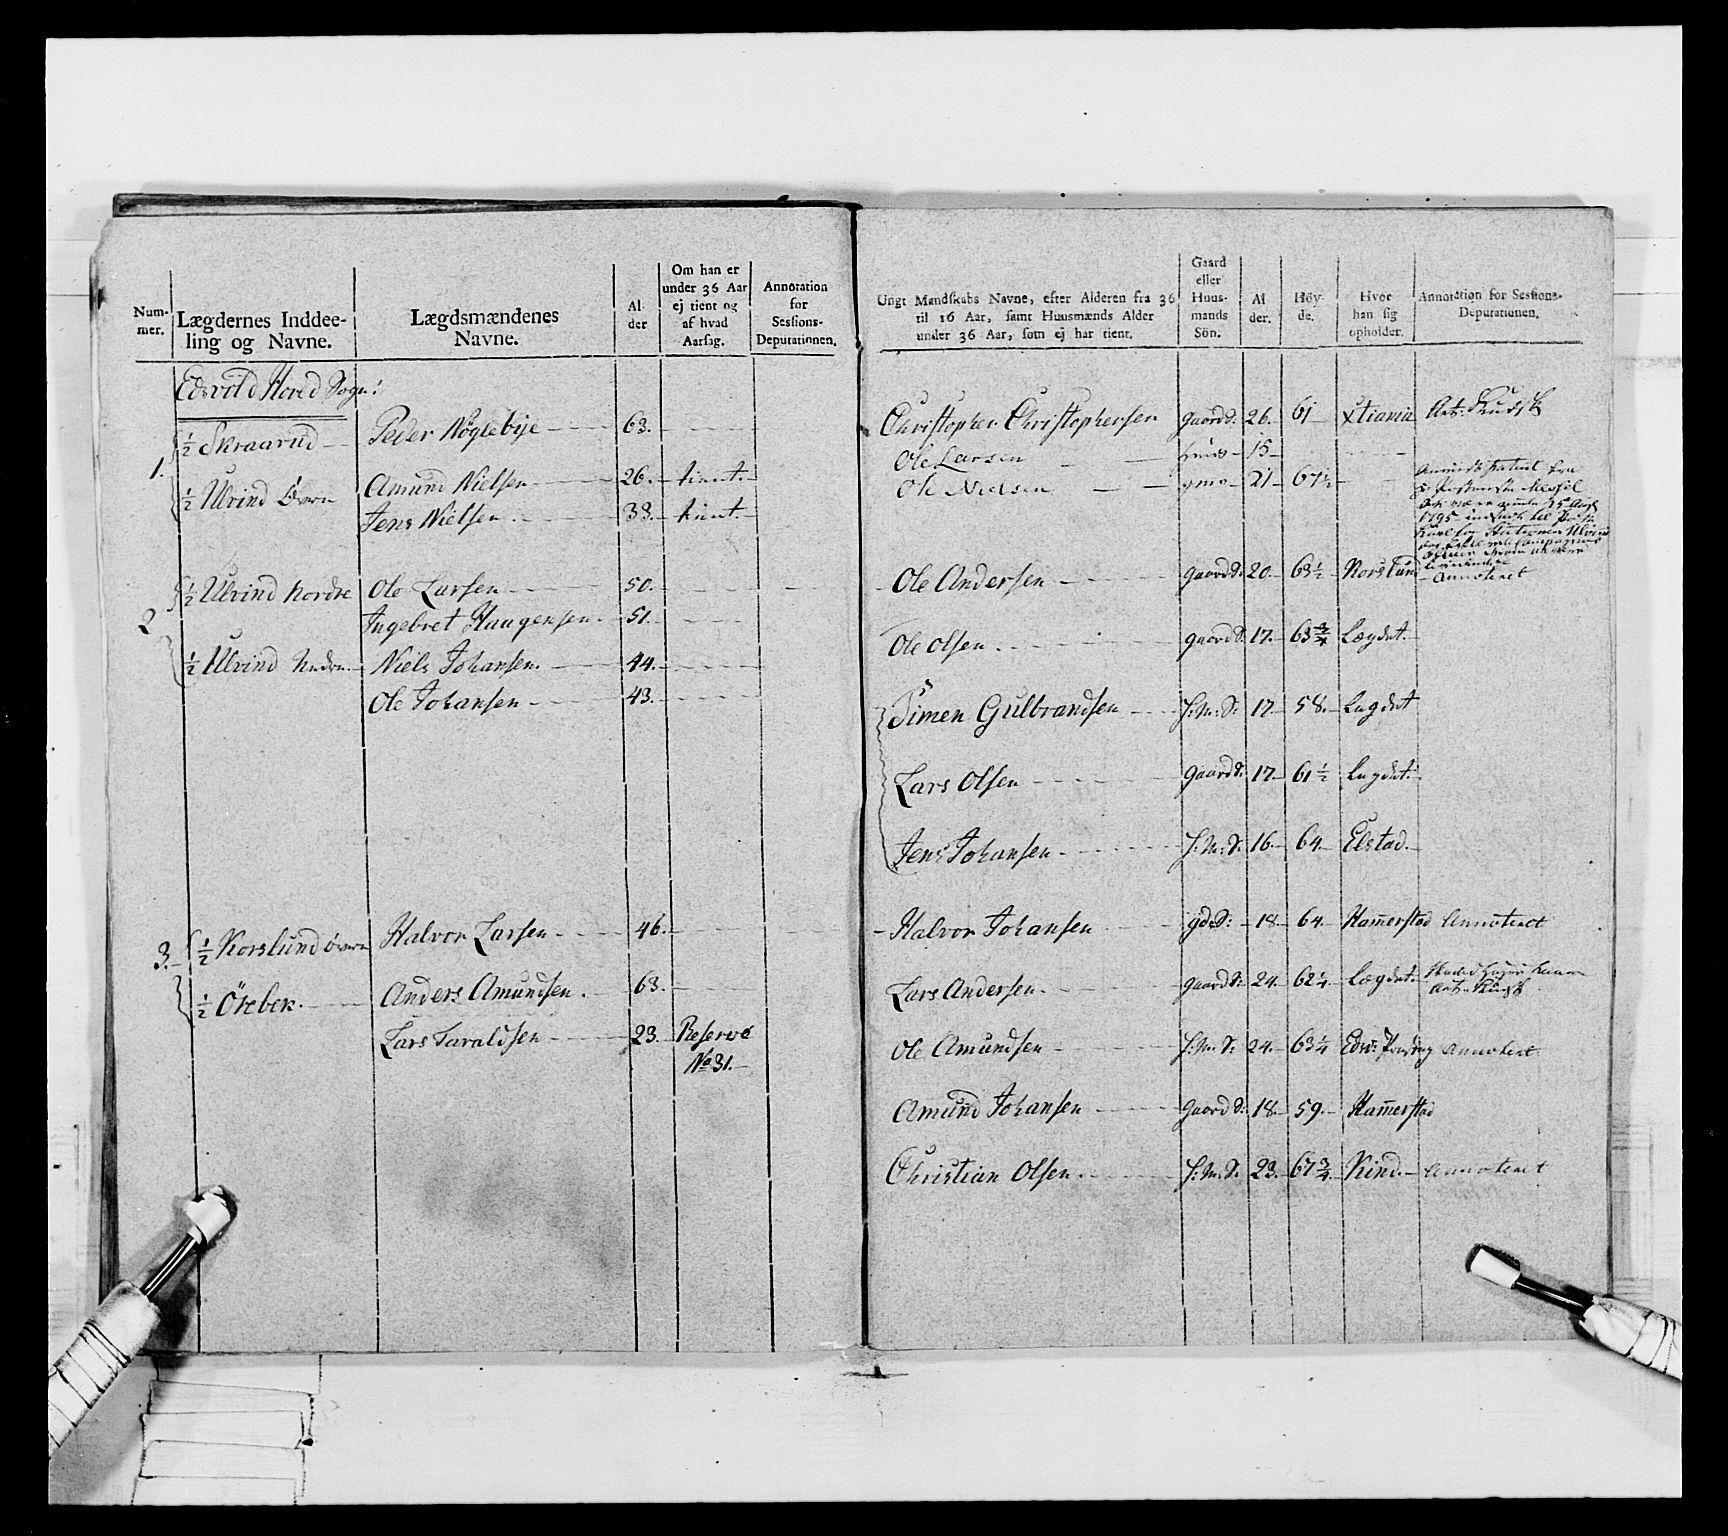 Num-
mer.
Lægdernes Inddee-
ling og Navne.
Lægdsmændenes
Navne.
Al-
der
Om han er
under 36 Aar
ej tient og
af hvad
Aarsag.
Annotation
for
Sessions-
Deputationen.
Edsvold Hoved Sogn:
1.
½ Skraarud Peder Nøglebye 63.
½ Ulvind Øvre Amund Nielsen 26. tient.
Jens Nielsen 33. tient
2
½ Ulvind Nordre Ole Larsen 50.
Ingebret Haugensen. 51.
½ Ulvind Nedre Niels Johansen. 44.
Ole Johansen 43.
3.
½ Korslund øvre Halvor Larsen 46.
½ Ökebek. Anders Amundsen. 63.
Lars Taraldsen 23. Reserve
No 31.
Ungt Mandskabs Navne, efter Alderen fra 36
til 16 Aar, samt Huusmænds Alder
under 36 Aar, som ej har tient.
Gaard
eller
Huus-
mands
Sön.
Al
der.
Höy-
de.
Hvor
han sig
opholder.
Annotation for Sessions-
Deputationen.
Christopher Christophersen gaard S. 26. 61 Xtiania
Ole Larsen 15
Ole Nielsen 21 67½
1795
Ole Andersen gaard S. 20. 63½ Korslund Annoteret
Ole Olsen. gaard S. 17. 63¾ Lægdet.
Simen Gulbrandsen H:M:S: 17. 58. Lægdet
Lars Olsen gaard S. 17. 61½ Lægdet.
Jens Johansen H:M:S: 16. 64. Elstad.
Halvor Johansen gd:S: 18. 64. Hamerstad Annoteret
Lars Andersen. gaard S: 24. 62¼ Lægdet.
Ole Amundsen H:M:S: 24. 63¼ Annoteret
Amund Johansen gaard S: 18. 59. Hamerstad
Christian Olsen. H:M:S: 23. 67¾ Kind. Annoteret